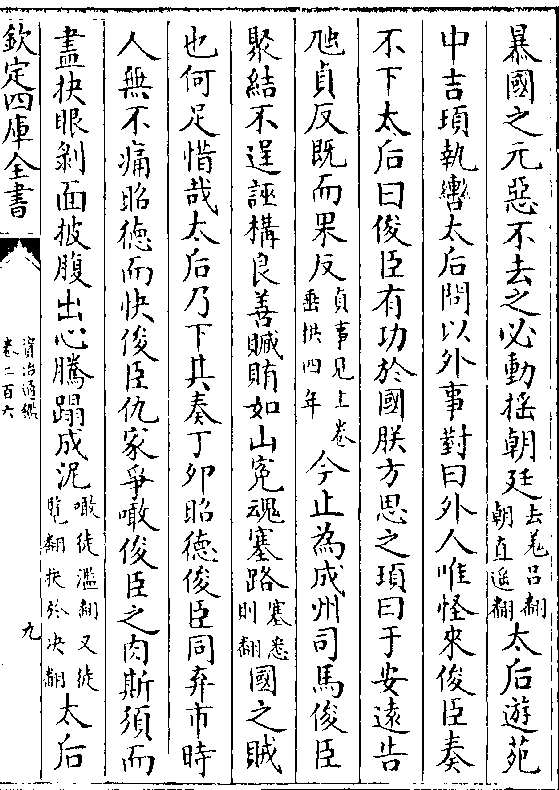 暴國之元惡不去之必動揺朝廷去羌呂翻朝直遥翻太后遊苑
中吉頊執轡太后問以外事對曰外人唯怪來俊臣奏
不下太后曰俊臣有功於國朕方思之頊曰于安遠告
虺貞反既而果反貞事見上卷垂拱四年今止為成州司馬俊臣
聚結不逞誣構良善贓賄如山寃魂塞路塞悉則翻國之賊
也何足惜哉太后乃下其奏丁夘昭徳俊臣同弃市時
人無不痛昭徳而快俊臣仇家爭噉俊臣之肉斯須而
盡抉眼剝面披腹出心騰蹋成泥噉徒濫翻又徒覽翻抉於决翻太后
欽定四庫全書
資治通鑑
卷二百六
九